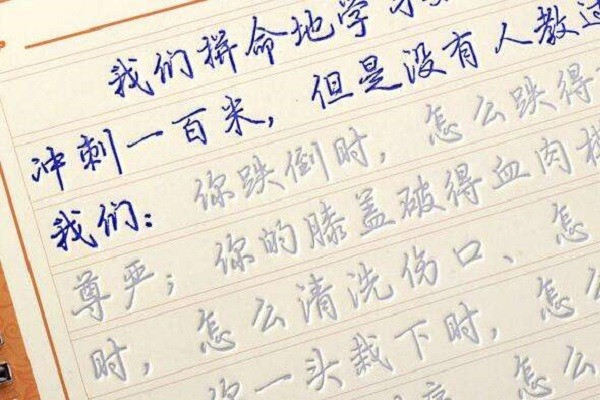 我们拼命地学习
冲刺一百米，但是没有人教过
我们：你跌倒时，怎么跌得
尊严；你的膝盖破得血肉模
时，怎么清洗伤口、怎
你一头栽下时，怎么
怎么